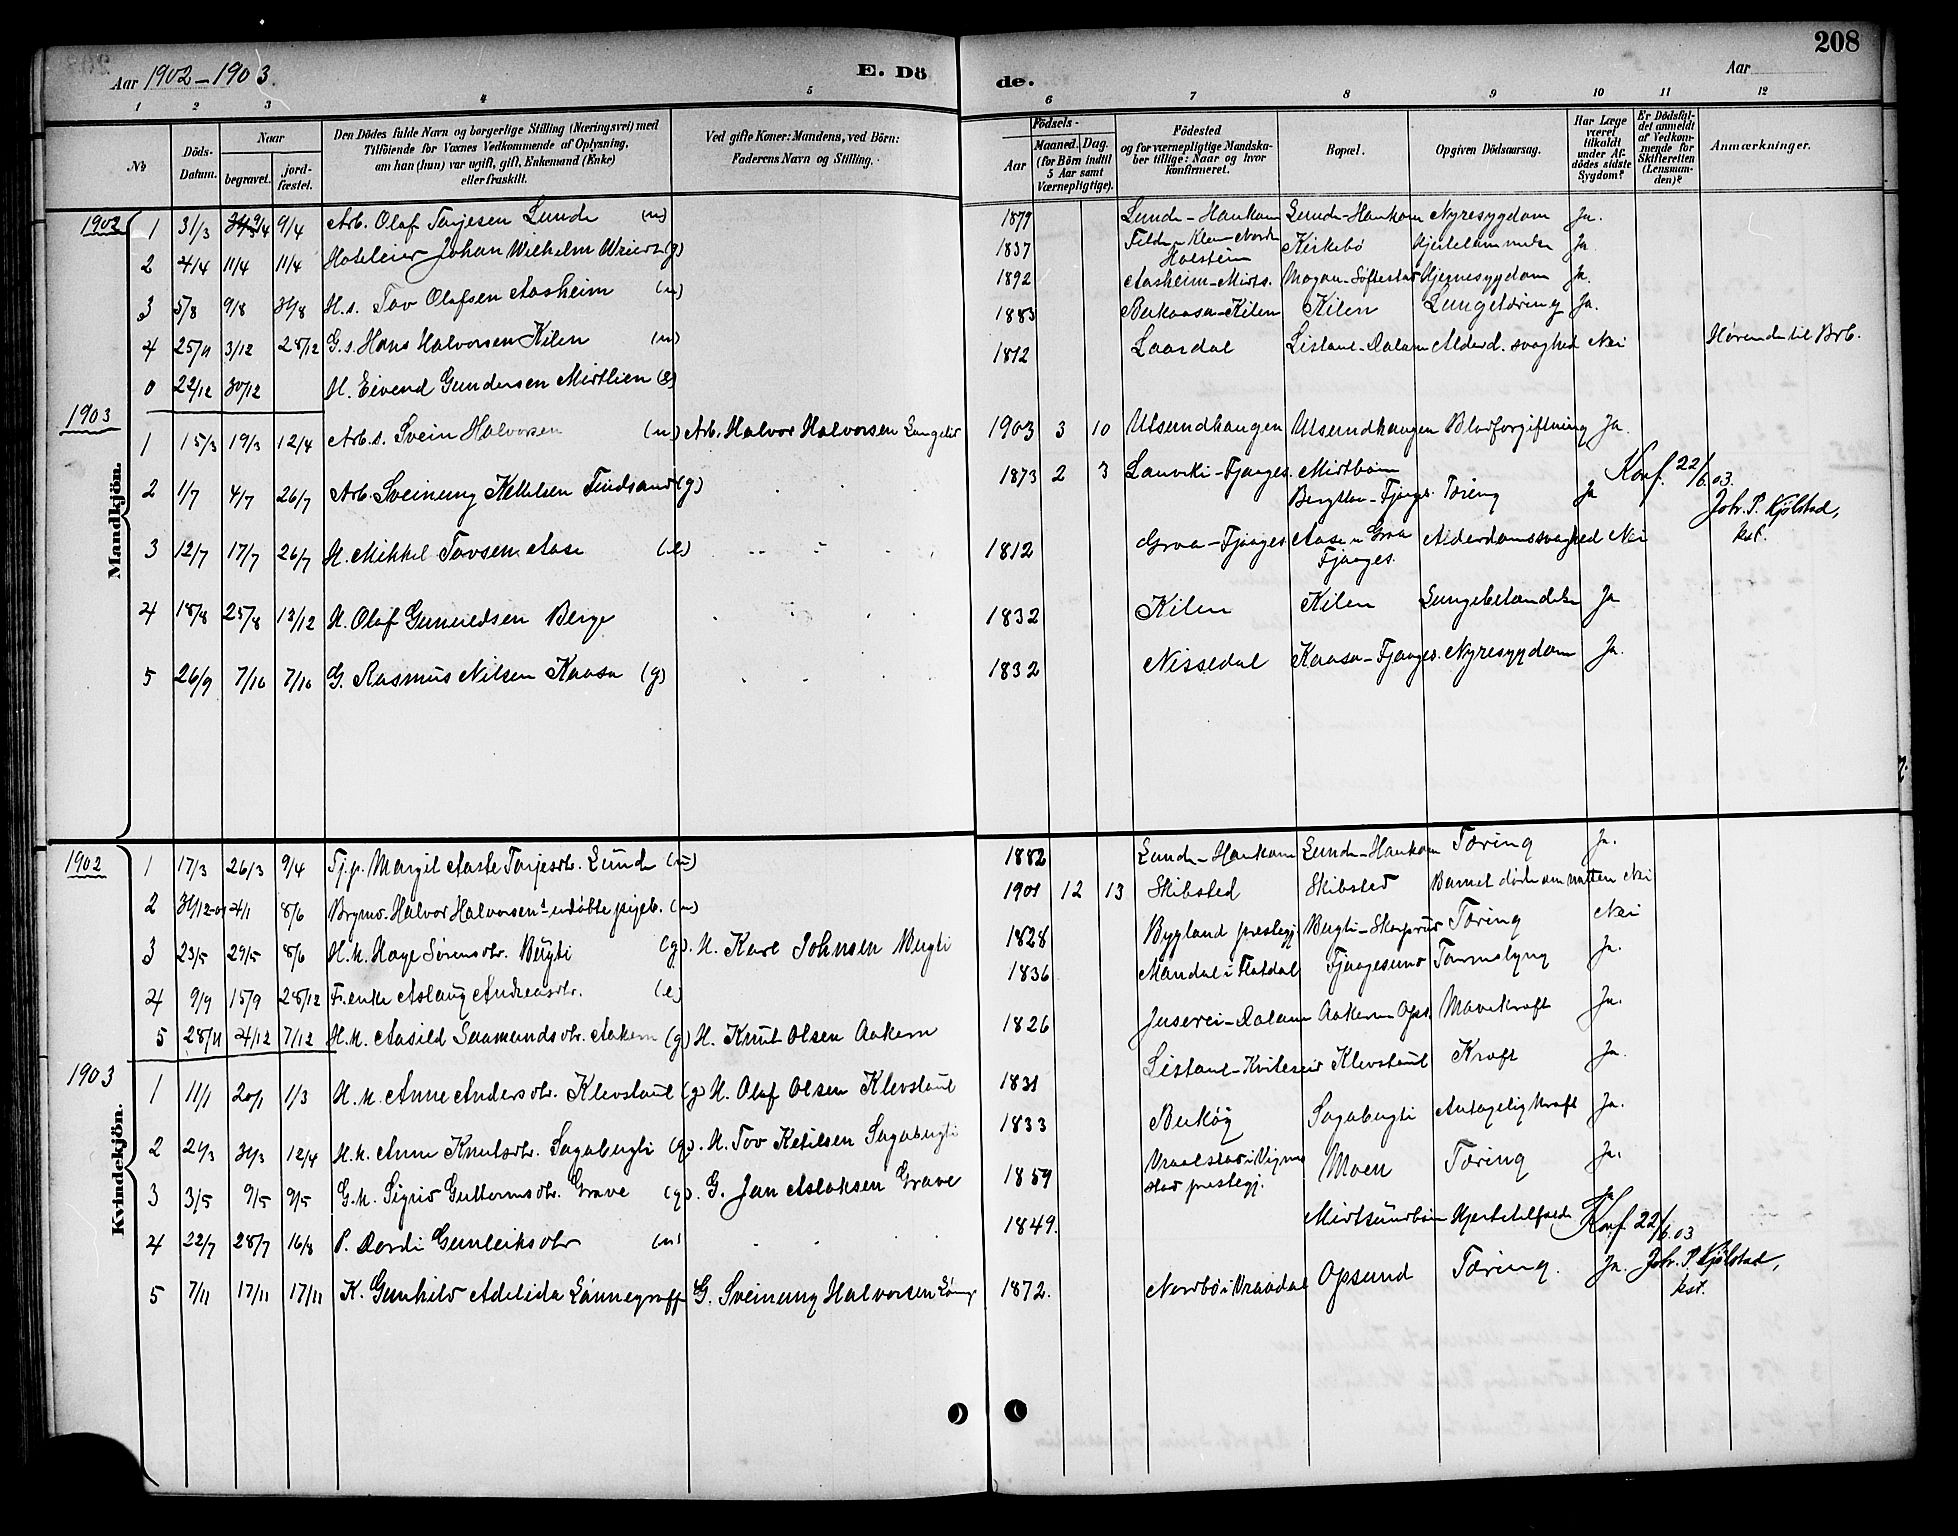 Aar 1902-1903. E. Dö de. Aar 208
1 2 3 4 5 6 7 8 9 10 11 12
No Döds-Datum. Naar begravet. jordfæstet. Den Dödes fulde Navn og borgerlige Stilling (Næringsvei) med Tilföiende for Voxnes Vedkommende af Oplysning, om han (hun) var ugift, gift, Enkemand (Enke) eller fraskilt. Ved gifte Koner: Mandens, ved Börn: Faderens Navn og Stilling. Födsels- Aar Maaned. Dag. (for Börn indtil 5 Aar samt Værnepligtige). Födested og for værnepligtige Mandskaber tillige: Naar og hvor konfirmeret. Bopæl. Opgiven Dödsaarsag. Har Læge været tilkaldt under Afdödes sidste Sygdom? Er Dödsfaldet anmeldt af Vedkommende for Skifteretten (Lensmanden)? Anmærkninger.
Mandkjön.
1902 1 31/3 9/4 9/4 Arb. Olaf Tarjesen Lunde (u) 1879 Lunde-Haukom Lunde-Haukom Nyresygdom Ja.
2 4/4 11/4 11/4 Hoteleier Johan Wilhelm (g) 1837 Holstein Kirkebö Hjertelammelse Ja
3 5/8 9/8 31/8 H.s. Tov Olafsen Aasheim (u) 1892 Aasheim-Mirts. Mogan-Söftestad Hjernesygdom Ja.
4 25/11 3/12 28/12 G.s. Hans Halvorsen Kilen (u) 1883 Berkaasa-Kilen Kilen Lungetæring Ja.
0 22/12 30/12 H. Eivend Gundersen Mirtlien (e) 1812 Laardal Listaul-Dalane Alderd. svaghed Nei Hörende til Brb.
1903
1 15/3 19/3 12/4 Arb.s. Svein Halvorsen (u) Arb. Halvor Halvorsen 1903 3 10 Utsundhaugen Utsundhaugen Blodforgiftning Ja.
2 1/7 4/7 26/7 Arb. Sveinung Ketilsen Findsand (g) 1873 2 3 Lauviki-Fjaages. Mirtböen Bergstau-Fjaages. Tæring Ja Konf. 22/6.03. Joh. P. Kjölstad, kst.
3 12/7 17/7 26/7 H. Mikkel Tovsen Aase (e) 1812 Groa-Fjaages Aase u. Groa Fjaages. Alderdomssvaghed Nei
4 18/8 25/8 13/12 H. Olaf Gunuldsen Berge 1832 Kilen Kilen Lungebetændelse Ja
5 26/9 7/10 7/10 G. Rasmus Nilsen Kaasa (g) 1832 Nissedal Kaasa-Fjaages. Nyresygdom Ja.
Kvindekjön.
1902 1 17/3 26/3 9/4 Tj.p. Margit Aaste Tarjesdtr. Lunde (u) 1882 Lunde-Haukom Lunde-Haukom Tæring Ja.
2 31/12-01 4/1 8/6 Brgmd. Halvor Halvorsens udöbte pigeb. (u) 1901 12 13 Skibsted Skibsted Barnet döde om natten Nei
3 23/5 29/5 8/6 H.k. Hage Sörensdtr. Bugti (g). H. Karl Johnsen Bugti 1828 Bygland prestegj. Bugti-Skarprud Tæring Nei
4 9/9 15/9 28/12 F.enke Aslaug Andreasdtr. (e) 1836 Mandal i Flatdal Fjaagesund Tarmslyng Ja.
5 28/11 4/12 7/12 H.k. Aasild Saamundsdtr. Aakern (g) H. Knut Olsen Aakern 1826 Juserei-Dalane Aakern-Ops. Mavekraft Ja.
1903 1 11/1 20/1 1/3 H.k. Anne Andersdtr. Klevstaul (g) H. Olaf Olsen Klevstaul 1831 Listaul-Kviteseid Klevstaul Kraft Ja.
2 21/3 31/3 12/4 H.k. Anne Knutsdtr. Sagabugti (g). H. Tov Ketilsen Sagabugti 1833 Berköy Sagabugti Antagelig kraft Ja.
3 3/5 9/5 9/5 G.k. Sigrid Guttormsdtr. Grave (g). G. Jan Aslaksen Grave 1859 Vraalstad i Vigmostad prestegj. Moen Tæring Ja.
4 22/7 28/7 16/8 P. Dordi Gunleiksdtr (u) 1849. Mirtsundböen Hjertetilfælde Ja Konf. 22/6.03 Joh. P. Kjölstad, kst.
5 7/11 17/11 17/11 K. Gunhild Adelida Lönnegraff G. Sveinung Halvorsen 1872. Nordbö i Vraadal Opsund Tæring. Ja.